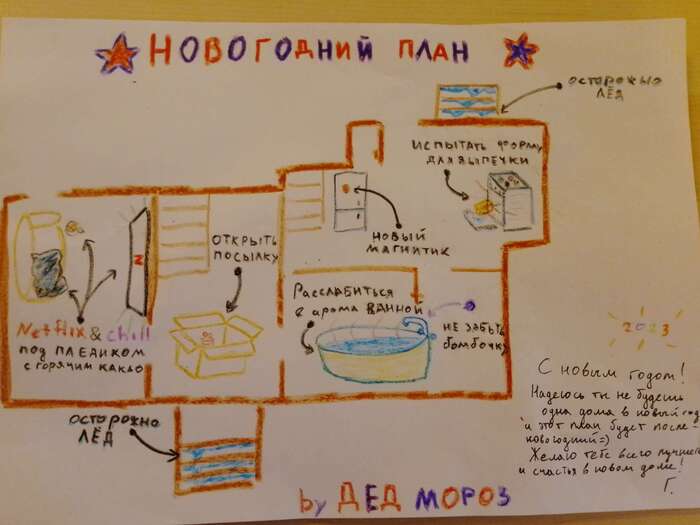 НОВОГОДНИЙ ПЛАН
ОСТОРОЖНО
ЛЁД
ИСПЫТАТЬ ФОРМУ
ДЛЯ ВЫПЕЧКИ
НОВЫЙ
МАГНИТИК
ОТКРЫТЬ
ПОСЫЛКУ
N
Netflix & chill
ПОД ПЛЕДИКОМ
С ГОРЯЧИМ КАКАО
РАССЛАБИТЬСЯ
В АРОМА ВАННОЙ
НЕ ЗАБЫТЬ
БОМБОЧКУ
ОСТОРОЖНО
ЛЁД
2023
С новым годом!
Надеюсь ты не будешь
одна дома в новый год
и этот план будет после-
новогодний =)
Желаю тебе всего лучшего
и счастья в новом доме!
Г.
by ДЕД МОРОЗ